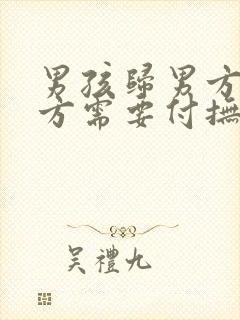 男孩歸男方
方需要付撫
吴禮九